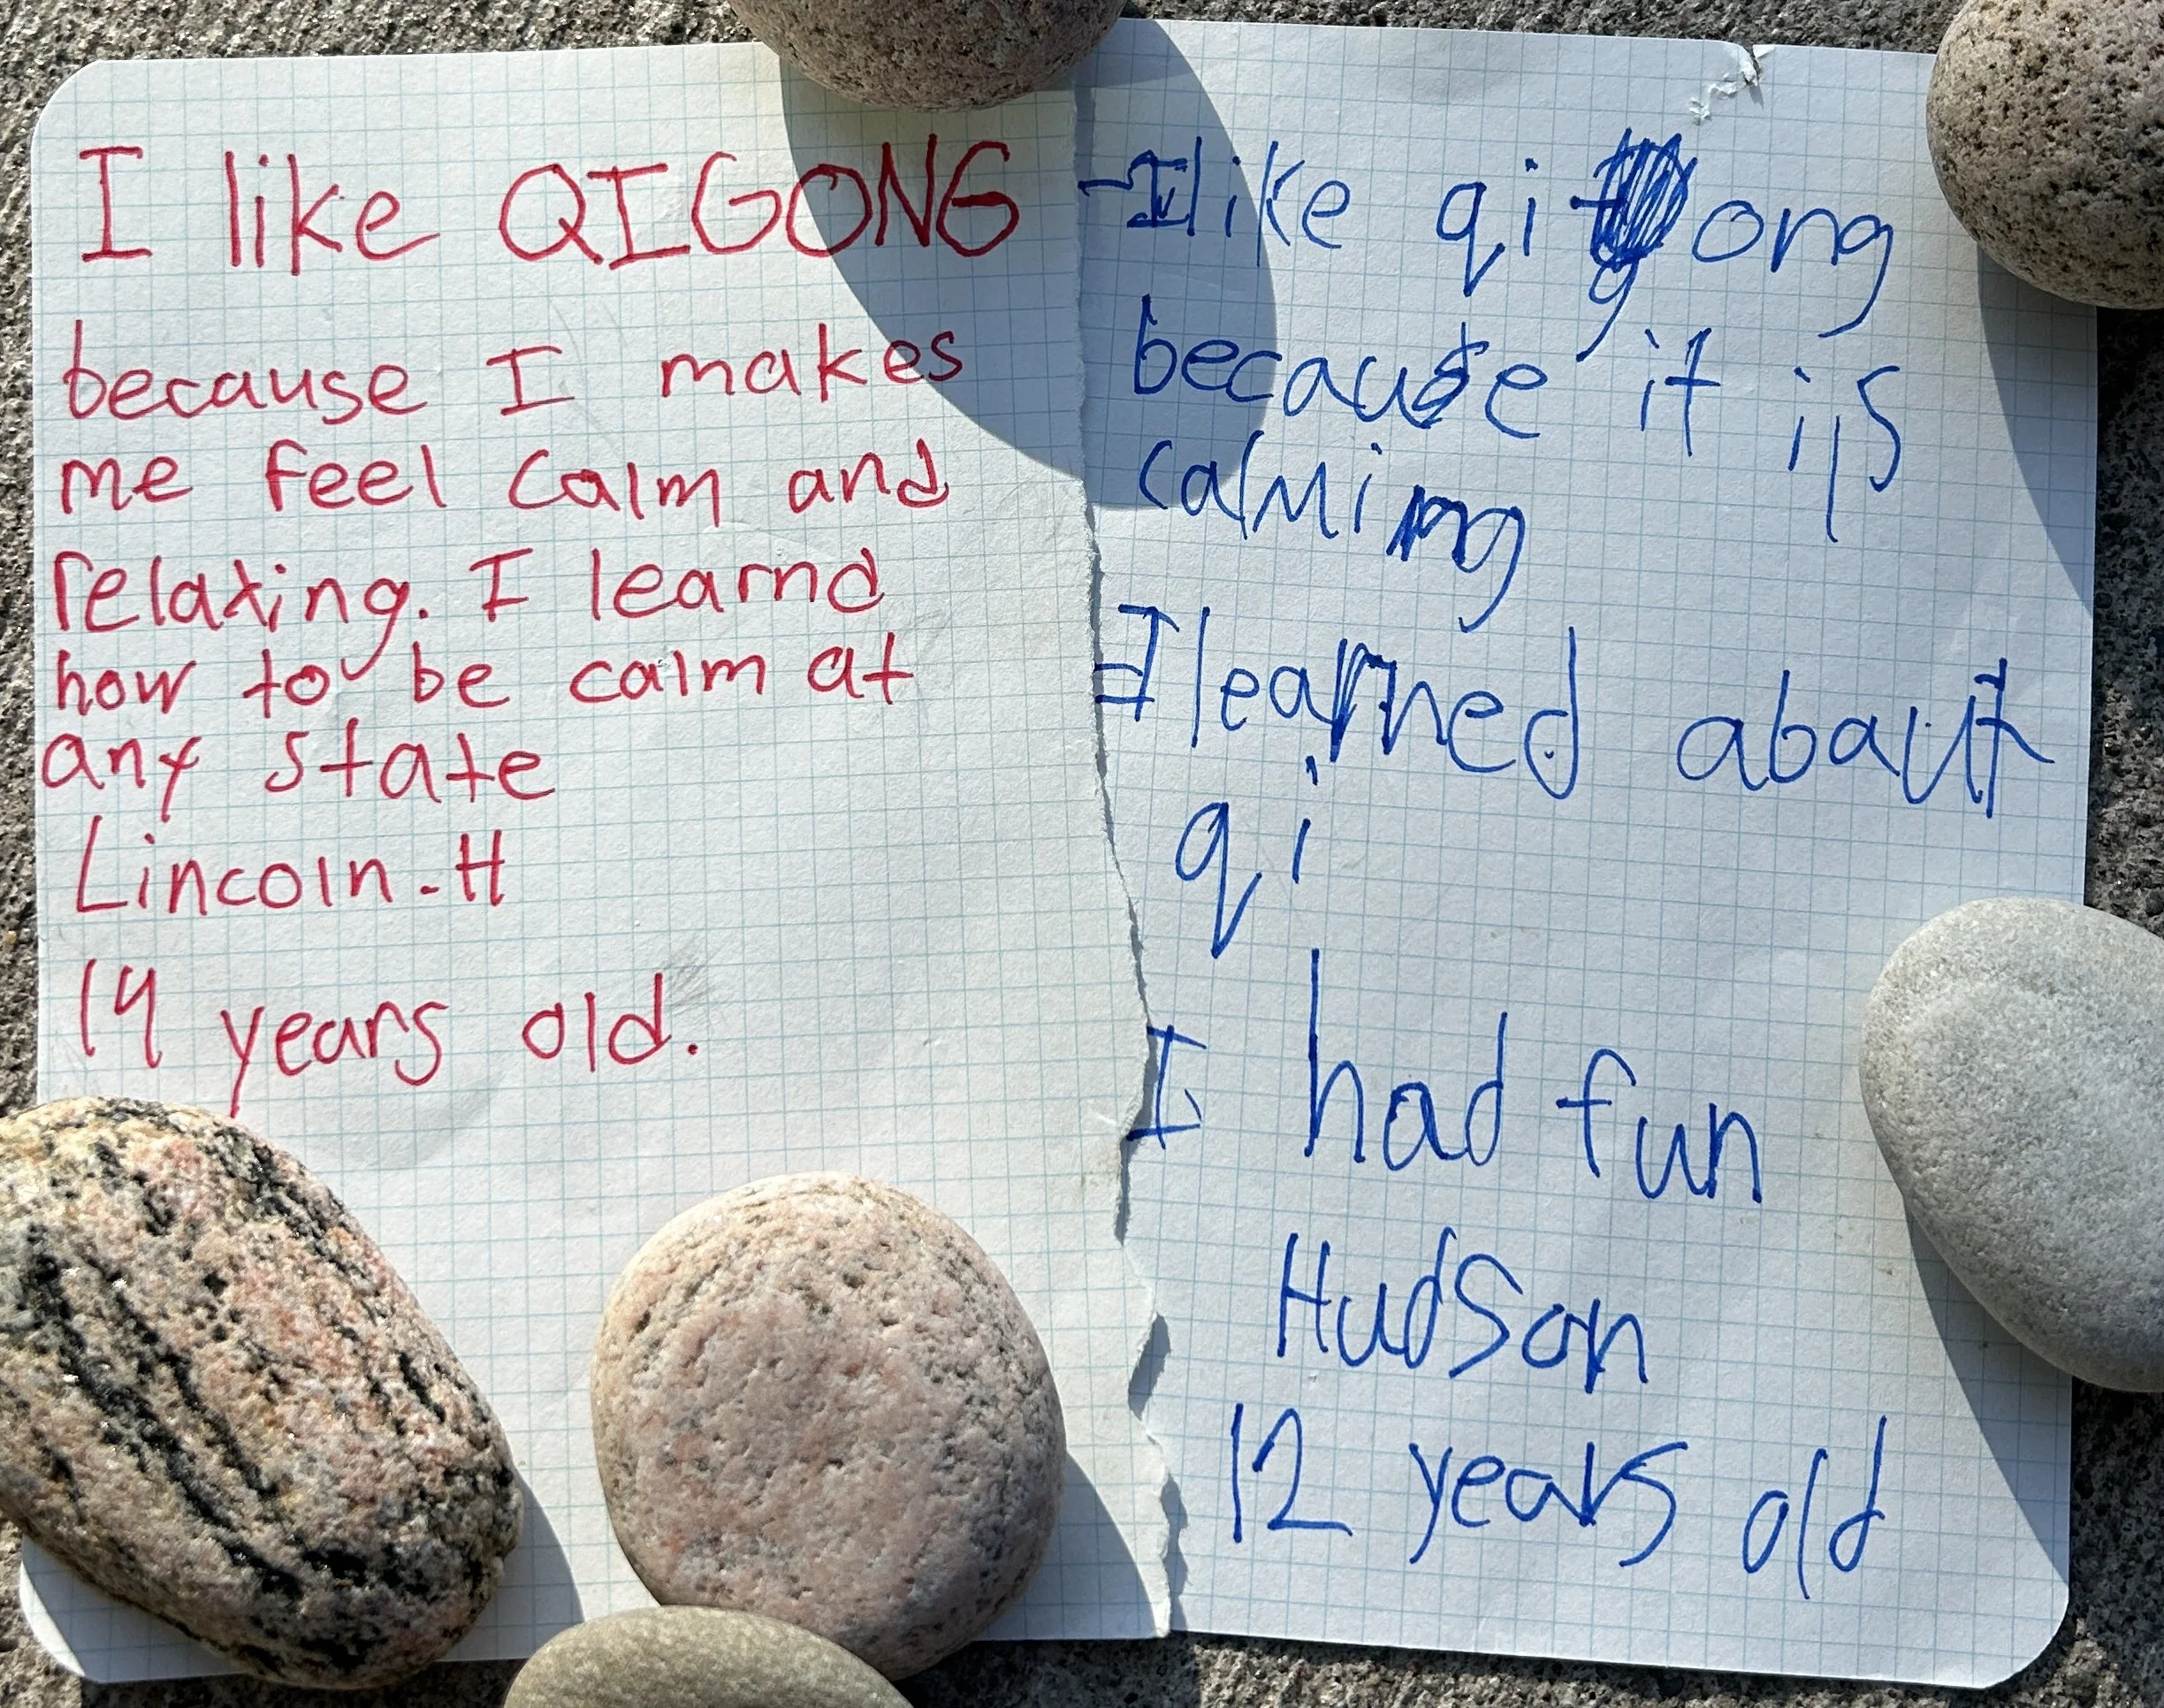 I like QIGONG
because I makes
me feel calm and
relaxing. I learnd
how to be calm at
any state
Lincoln-H
14 years old.
I like qigong
because it is
calming
I learned abaut
qi
I had fun
Hudson
12 years old